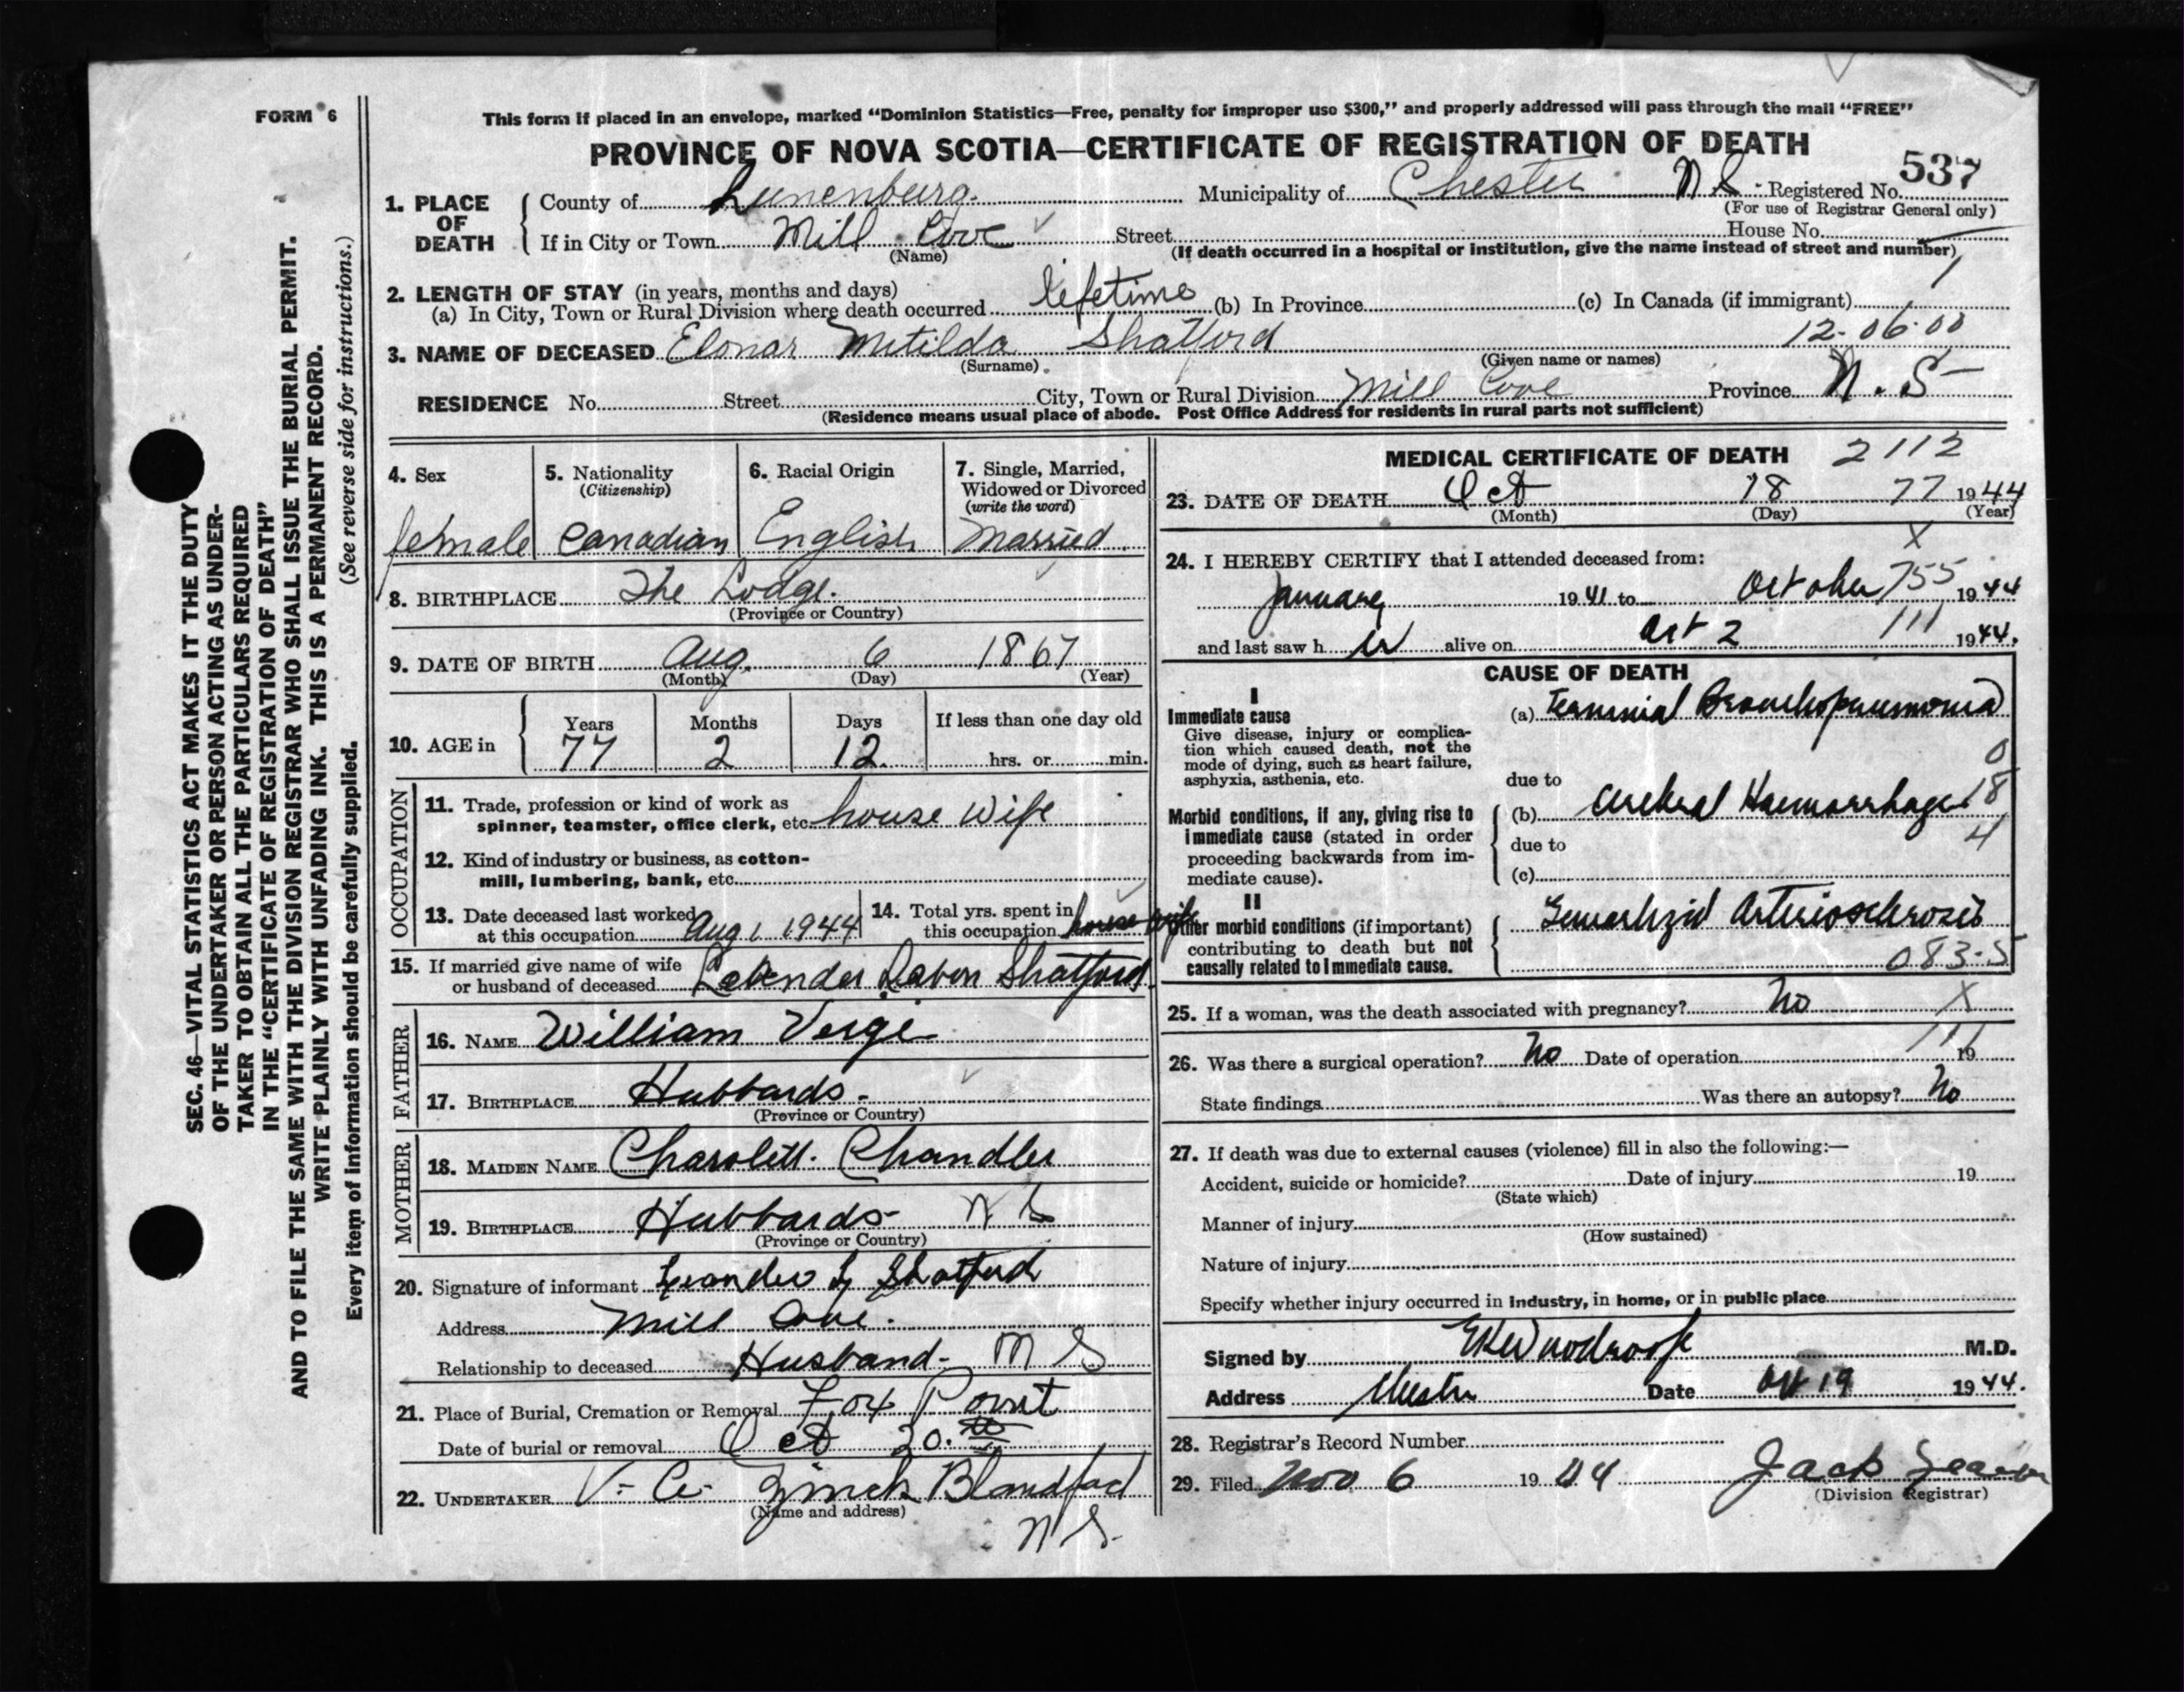 FORM 6
This form if placed in an envelope, marked "Dominion Statistics—Free, penalty for improper use $300," and properly addressed will pass through the mail "FREE"
PROVINCE OF NOVA SCOTIA—CERTIFICATE OF REGISTRATION OF DEATH
537
1. PLACE OF DEATH
County of Lunenburg. Municipality of Chester N S. Registered No.
(For use of Registrar General only)
If in City or Town Mill Cove Street House No.
(Name)
(If death occurred in a hospital or institution, give the name instead of street and number)
2. LENGTH OF STAY (in years, months and days)
(a) In City, Town or Rural Division where death occurred lifetime (b) In Province (c) In Canada (if immigrant)
12-06-00
3. NAME OF DECEASED Elonar Metilda Shatford
(Surname) (Given name or names)
RESIDENCE No. Street City, Town or Rural Division Mill Cove Province N. S
(Residence means usual place of abode. Post Office Address for residents in rural parts not sufficient)
4. Sex
female
5. Nationality
(Citizenship)
Canadian
6. Racial Origin
English
7. Single, Married,
Widowed or Divorced
(write the word)
Married
8. BIRTHPLACE The Lodge.
(Province or Country)
9. DATE OF BIRTH Aug. 6 1867
(Month) (Day) (Year)
10. AGE in
Years Months Days If less than one day old
77 2 12. hrs. or min.
OCCUPATION
11. Trade, profession or kind of work as
spinner, teamster, office clerk, etc. house wife
12. Kind of industry or business, as cotton-
mill, lumbering, bank, etc.
13. Date deceased last worked
at this occupation Aug 1 1944
14. Total yrs. spent in
this occupation house wife
15. If married give name of wife
or husband of deceased Shatford
FATHER
16. NAME William Verge
17. BIRTHPLACE Hubbards.
(Province or Country)
MOTHER
18. MAIDEN NAME Charolett. Chandler
19. BIRTHPLACE Hubbards- N S
(Province or Country)
20. Signature of informant Leander Shatford
Address Mill Cove.
Relationship to deceased Husband- N S
21. Place of Burial, Cremation or Removal Fox Point
Date of burial or removal Oct 20.
22. UNDERTAKER V. C. Zinck Blandford
(Name and address)
N S.
MEDICAL CERTIFICATE OF DEATH 2112
23. DATE OF DEATH Oct 18 77 1944
(Month) (Day) (Year)
X
24. I HEREBY CERTIFY that I attended deceased from:
January 1941 to October 755 1944
and last saw h er alive on Oct 2 111 1944.
CAUSE OF DEATH
I
Immediate cause
Give disease, injury or complica-
tion which caused death, not the
mode of dying, such as heart failure,
asphyxia, asthenia, etc.
(a) Terminal Bronchopneumonia
0
due to
Morbid conditions, if any, giving rise to
immediate cause (stated in order
proceeding backwards from im-
mediate cause).
(b) Cerebral Haemorrhage 18
due to 4
(c)
II
Other morbid conditions (if important)
contributing to death but not
causally related to immediate cause.
Generalized Arteriosclerosis
083.5
25. If a woman, was the death associated with pregnancy? No X
111
26. Was there a surgical operation? No Date of operation 19
State findings Was there an autopsy? No
27. If death was due to external causes (violence) fill in also the following:—
Accident, suicide or homicide? Date of injury 19
(State which)
Manner of injury
(How sustained)
Nature of injury
Specify whether injury occurred in industry, in home, or in public place
Signed by Woodroofe M.D.
Address Chester Date Oct 19 1944.
28. Registrar's Record Number
29. Filed Nov 6 1944 Jack
(Division Registrar)
SEC. 46—VITAL STATISTICS ACT MAKES IT THE DUTY
OF THE UNDERTAKER OR PERSON ACTING AS UNDER-
TAKER TO OBTAIN ALL THE PARTICULARS REQUIRED
IN THE "CERTIFICATE OF REGISTRATION OF DEATH"
AND TO FILE THE SAME WITH THE DIVISION REGISTRAR WHO SHALL ISSUE THE BURIAL PERMIT.
WRITE PLAINLY WITH UNFADING INK. THIS IS A PERMANENT RECORD.
Every item of information should be carefully supplied. (See reverse side for instructions.)